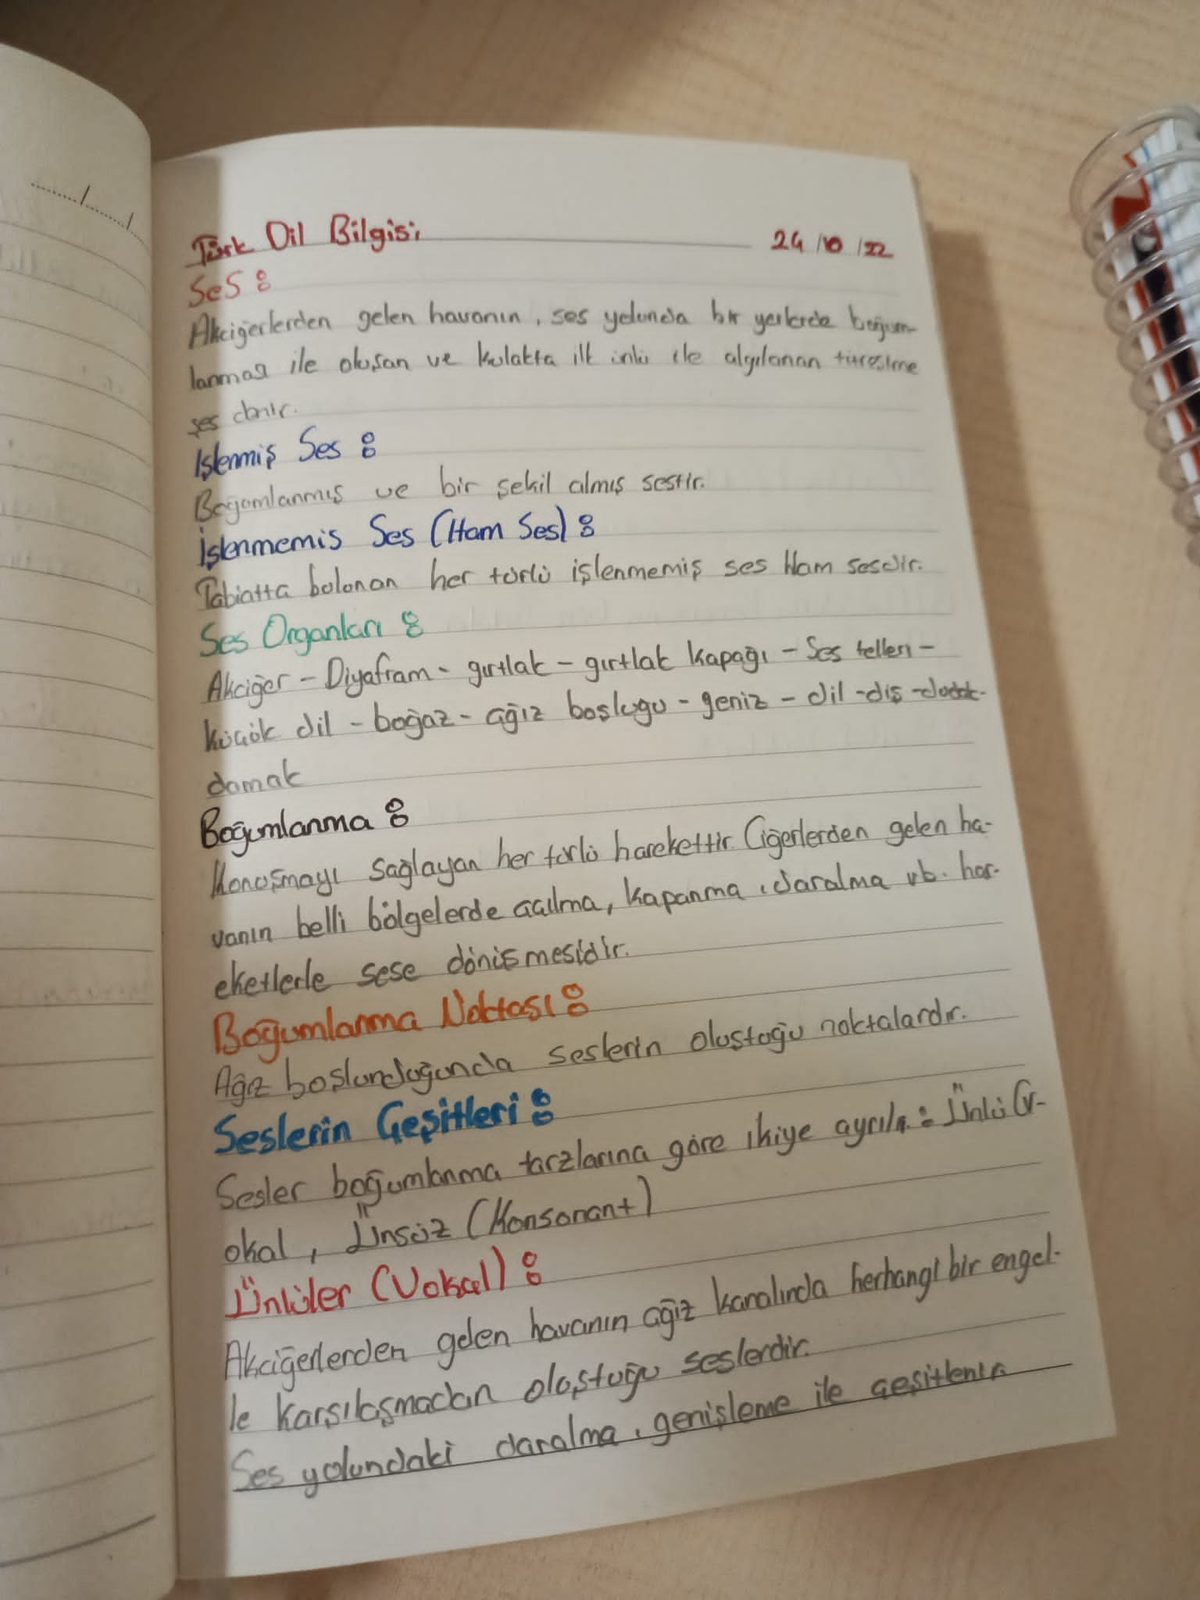 Türk Dil Bilgisi 24/10/22
Ses:
Akciğerlerden gelen havanın, ses yolunda bir yerlerde boğum-
lanması ile oluşan ve kulakta ilk ünlü ile algılanan titreşime
ses denir.
İşlenmiş Ses:
Boğumlanmış ve bir şekil almış sestir.
İşlenmemiş Ses (Ham Ses):
Tabiatta bulunan her türlü işlenmemiş ses Ham sesdir.
Ses Organları:
Akciğer - Diyafram - gırtlak - gırtlak kapağı - Ses telleri -
küçük dil - boğaz - ağız boşluğu - geniz - dil - diş - dudak-
damak
Boğumlanma:
Konuşmayı sağlayan her türlü harekettir. Ciğerlerden gelen ha-
vanın belli bölgelerde açılma, kapanma, daralma vb. har-
eketlerle sese dönüşmesidir.
Boğumlanma Noktası:
Ağız seslerin oluştuğu noktalardır.
Seslerin Çeşitleri:
Sesler boğumlanma tarzlarına göre ikiye ayrılır: Ünlü (V-
okal, Ünsüz (Konsonant)
Ünlüler (Vokal):
Akciğerlerden gelen havanın ağız kanalında herhangi bir engel-
le karşılaşmadan oluştuğu seslerdir.
Ses yolundaki daralma, genişleme ile çeşitlenir